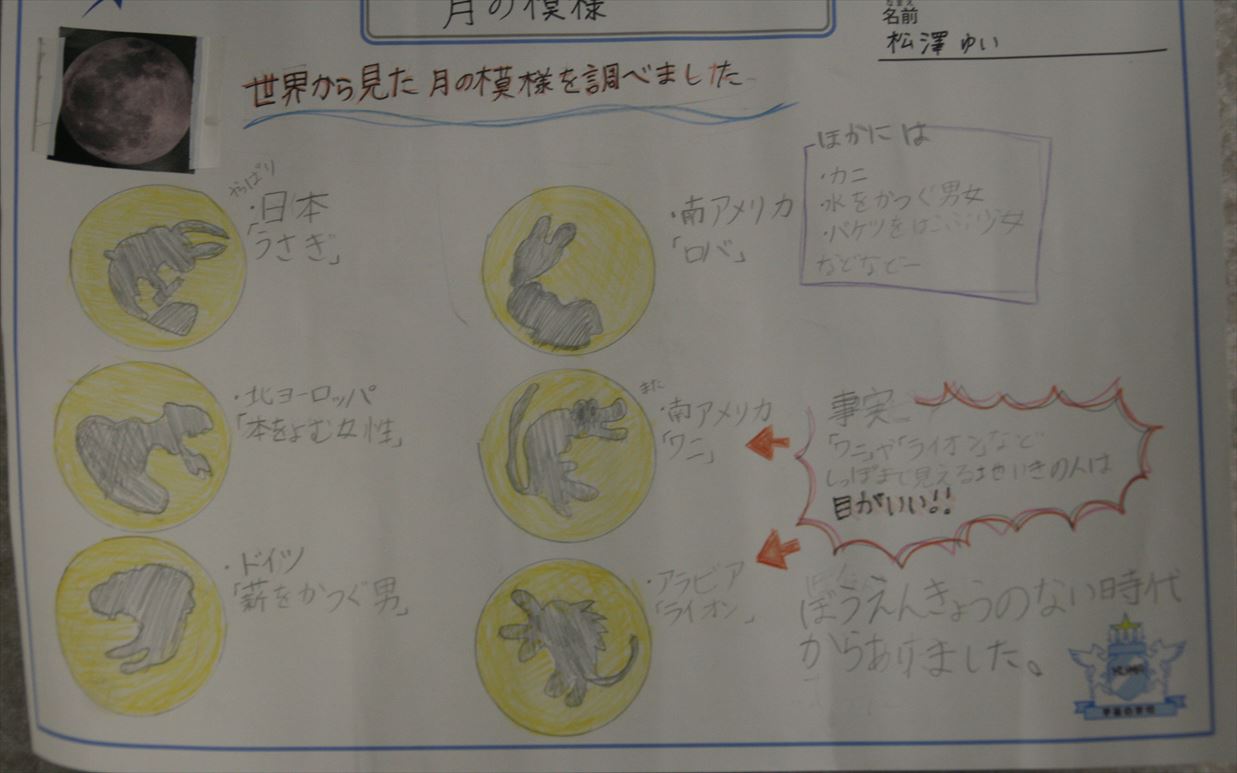 月の模様
名前
松澤ゆい
世界から見た月の模様を調べました
やっぱり
・日本
「うさぎ」
・南アメリカ
「ロバ」
ほかには
・カニ
・水をかつぐ男女
・バケツをはこぶ少女
などなどー
・北ヨーロッパ
「本をよむ女性」
また
・南アメリカ
「ワニ」
事実
「ワニ」や「ライオン」など
しっぽまで見える地いきの人は
目がいい!!
・ドイツ
「薪をかつぐ男」
・アラビア
「ライオン」
ぼうえんきょうのない時代
からありました。